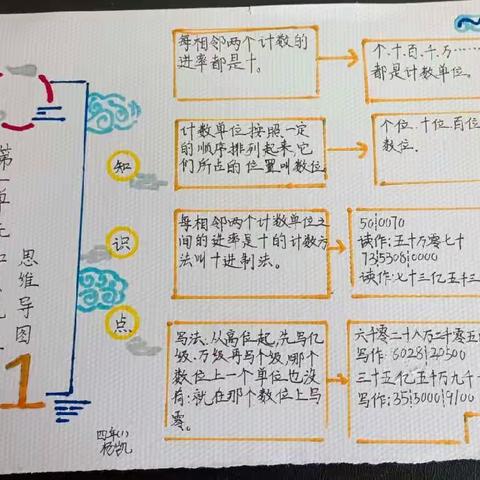 每相邻两个计数的
进率都是十。
个.十.百.千.万……
都是计数单位。
计数单位按照一定
的顺序排列起来,它
们所占的位置叫数位。
个位.十位.百位
数位.
每相邻两个计数单位之
间的进率是十的计数方
法叫十进制法。
50|0070
读作:五十万零七十
73|5308|0000
读作:七十三亿五千三
写法:从高位起,先写亿
级.万级再写个级,哪个
数位上一个单位也没
有.就在那个数位上写
零。
六千零二十八万二千零五
写作:6028|20500
三十五亿五千万九千一
写作:35|5000|9100
知
识
点
第一单元
思维导图
1
四年(1)
杨凯